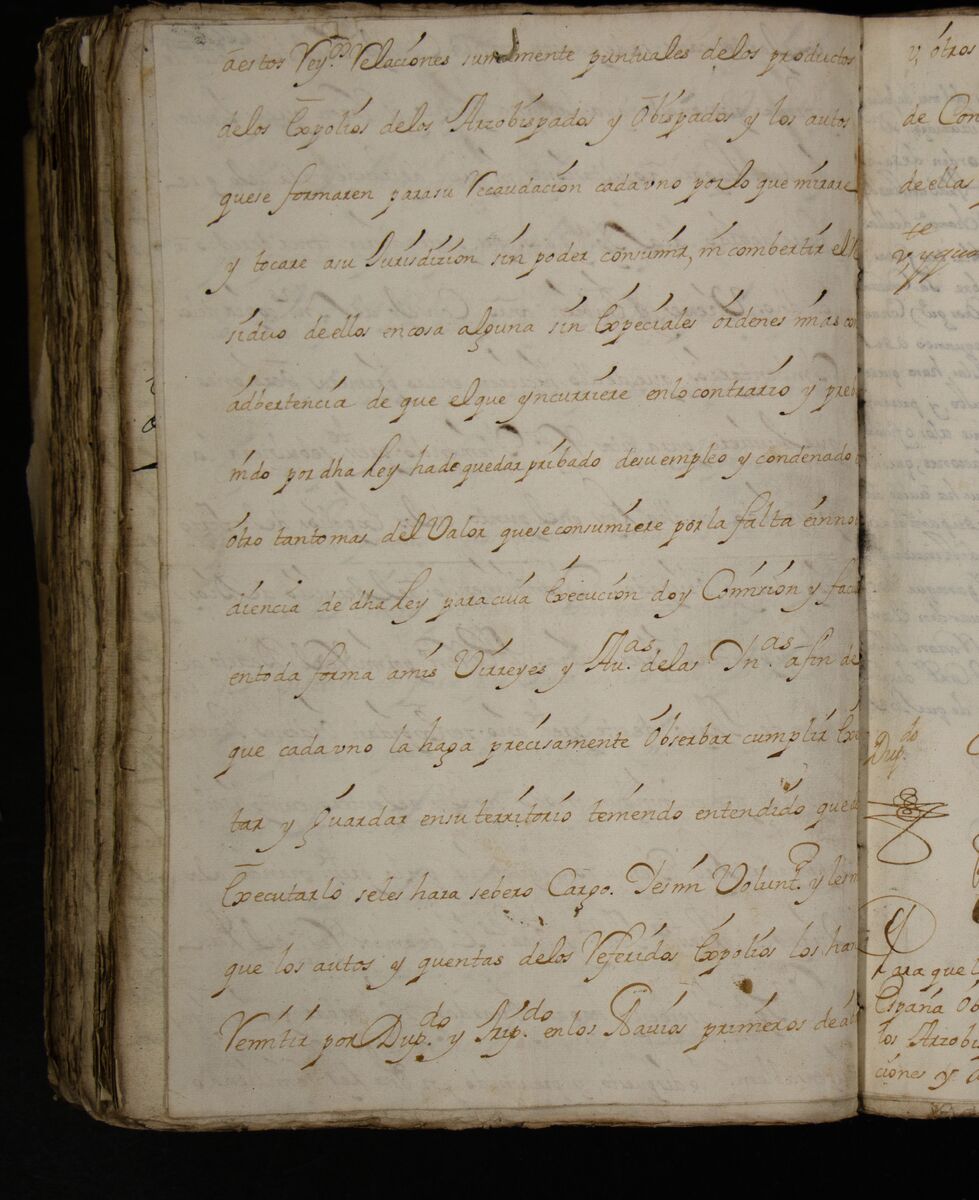 âestos Rey.ᵒˢ Relaciones sumamente puntuales delos productos
delos Expolios delos Arzobispados y Obispados y los autos
quese formaren parasu Recaudacion cada vno por lo que mirare
y tocare asu Jurisdizion sin poder consumir, ni combertir el
siduo de ellos encosa alguna sin Expeciales órdenes mias con
adbertencia de que elque yncurriere enlo contrario y preve
nido por dha Ley hade quedar pribado desu empleo y condenado
ótro tantomas del Valor quese consumiere por la falta éinno
diencia de dha Ley para cuia Execucion doy Comision y facul
entoda forma amis Virreyes y Au.ᵃˢ delas Yn.ᵃˢ afin de
que cada vno la haga precisamente Obserbar cumplir Exe
tar y Guardar ensu territorio teniendo entendido que
Executarlo seles hara sebero Cargo. Desmi Volunt.ᵈ y les
que los autos y quentas delos Referidos Expolios los ha
Remitir por Dup.ᵈᵒ y Trip.ᵈᵒ enlos Navios primeros de
y ótros
de Con
de ellas
Dup.ᵈᵒ
Para que
España
los Arzobi
ciones y